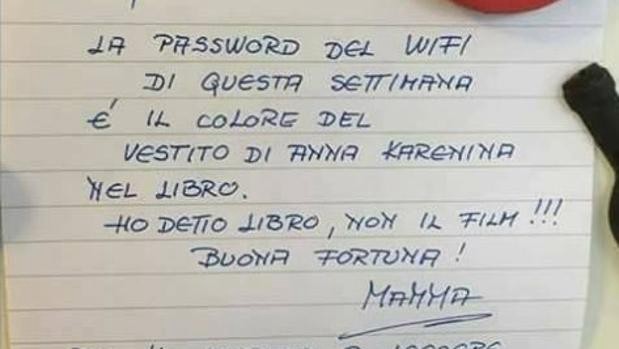 LA PASSWORD DEL WIFI
DI QUESTA SETTIMANA
É IL COLORE DEL
VESTITO DI ANNA KARENINA
NEL LIBRO.
HO DETTO LIBRO, NON IL FILM!!!
BUONA FORTUNA!
MAMMA